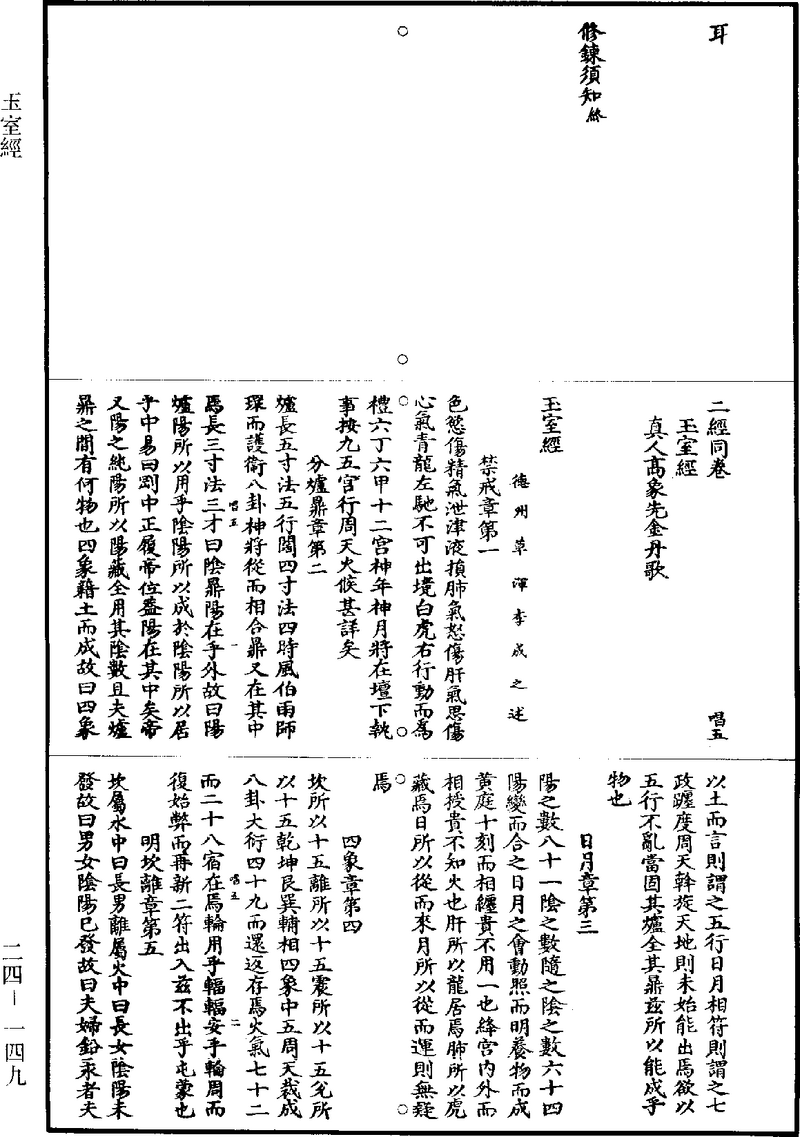 耳
修鍊須知終
二經同卷
玉室經
真人高象先金丹歌
唱五
玉室經
德州草澤李成之述
禁戒章第一
色慾傷精氣泄津液損肺氣怒傷肝氣思傷
心氣青龍左馳不可出境白虎右行動而為
禮六丁六甲十二宮神年神月將在壇下執
事按九五宮行周天火候甚詳矣
分爐鼎章第二
爐長五寸法五行闊四寸法四時風伯雨師
環而護衛八卦神將從而相合鼎又在其中
焉長三寸法三才曰陰鼎陽在乎外故曰陽
唱五
一
爐陽所以用乎陰陽所以成於陰陽所以居
乎中易曰剛中正履帝位蓋陽在其中矣帝
又陽之純陽所以陽藏全用其陰數且夫爐
鼎之間有何物也四象藉土而成故曰四象
以土而言則謂之五行日月相符則謂之七
政躔度周天斡旋天地則未始能出焉欲以
五行不亂當固其爐全其鼎茲所以能成乎
物也
日月章第三
陽之數八十一陰之數隨之陰之數六十四
陽變而合之日月之會動照而明養物而成
黃庭十刻而相纏貴不用一也絳宮內外而
相授貴不知火也肝所以龍居焉肺所以虎
藏焉日所以從而來月所以從而運則無疑
焉
四象章第四
坎所以十五離所以十五震所以十五兌所
以十五乾坤艮巽輔相四象中五周天裁成
八卦大衍四十九而還返存焉火氣七十二
唱五
二
而二十八宿在焉輪用乎輻輻安乎輪周而
復始弊而再新二符出入茲不出乎屯蒙也
明坎離章第五
坎屬水中曰長男離屬火中曰長女陰陽未
發故曰男女陰陽已發故曰夫婦鉛汞者夫
玉室經
二四—一四九